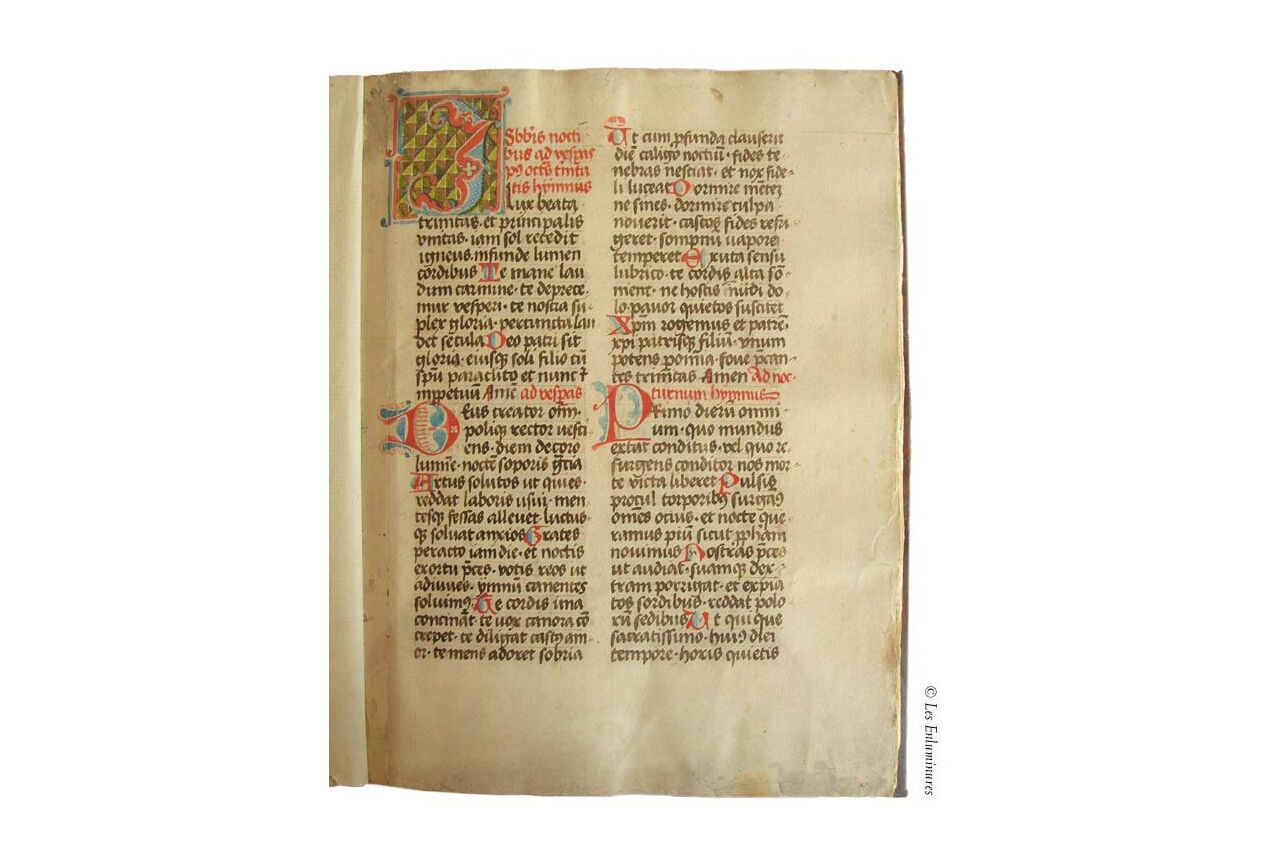 Sbb̄is nocti
bus ad vesp̄as
p9 octs̄ tinita
tis hymnus
O lux beata
trinitas. et principalis
vnitas. iam sol recedit
igneus. infunde lumen
cordibus Te mane lau
dum carmine. te deprece
mur vesperi. te nostra su
plex gloria. per cuncta lau
det secula Deo patri sit
gloria. eiusq3 soli filio cū
spū paraclito et nunc et
inppetuū Amē ad vesp̄as
Deus creator oīm.
poliq3 rector vesti
ens. diem decoro
lumīe. noctē soporis grā
Artus solutos ut quies.
reddat laboris usui. men
tesq3 fessas alleuet. luctus
q3 soluat anxios Grates
peracto iam die. et noctis
exortu p̄ces. votis reos ut
adiuues. ymnū canentes
soluim9 Te cordis ima
concināt. te vox canora cō
crepet. te diligat cast9 am
or. te mens adoret sobria
Ut cum p̄funda clauserit
diē caligo noctiū. fides te
nebras nesciat. et nox fide
li luceat Dormire mētez
ne sines. dormire culpa
nouerit. castos fides refri
geret. sompnū uapores
temperet Exuta sensu
lubrico. te cordis alta sō
nient. ne hostis īuidi do
lo. pauor quietos suscitet
Xpm rogemus et patrē.
xpi patrisq3 filiū. vnum
potens p om̄ia. foue p̄can
tes trinitas Amen Ad noc
turnum hymnus
Primo dierum omni
um. quo mundus
extat conditus. vel quo re
surgens conditor nos mor
te victa liberet Pulsis
procul torporib9 surgam9
om̄es ocius. et nocte que
ramus piū sicut pphām
nouimus Nostras p̄ces
ut audiat. suamq3 dex
tram porrigat. et expia
tos sordibus. reddat polo
rū sedibus Ut qui que
sacratissimo. hui9 diei
tempore. horis quietis
© Les Enluminures